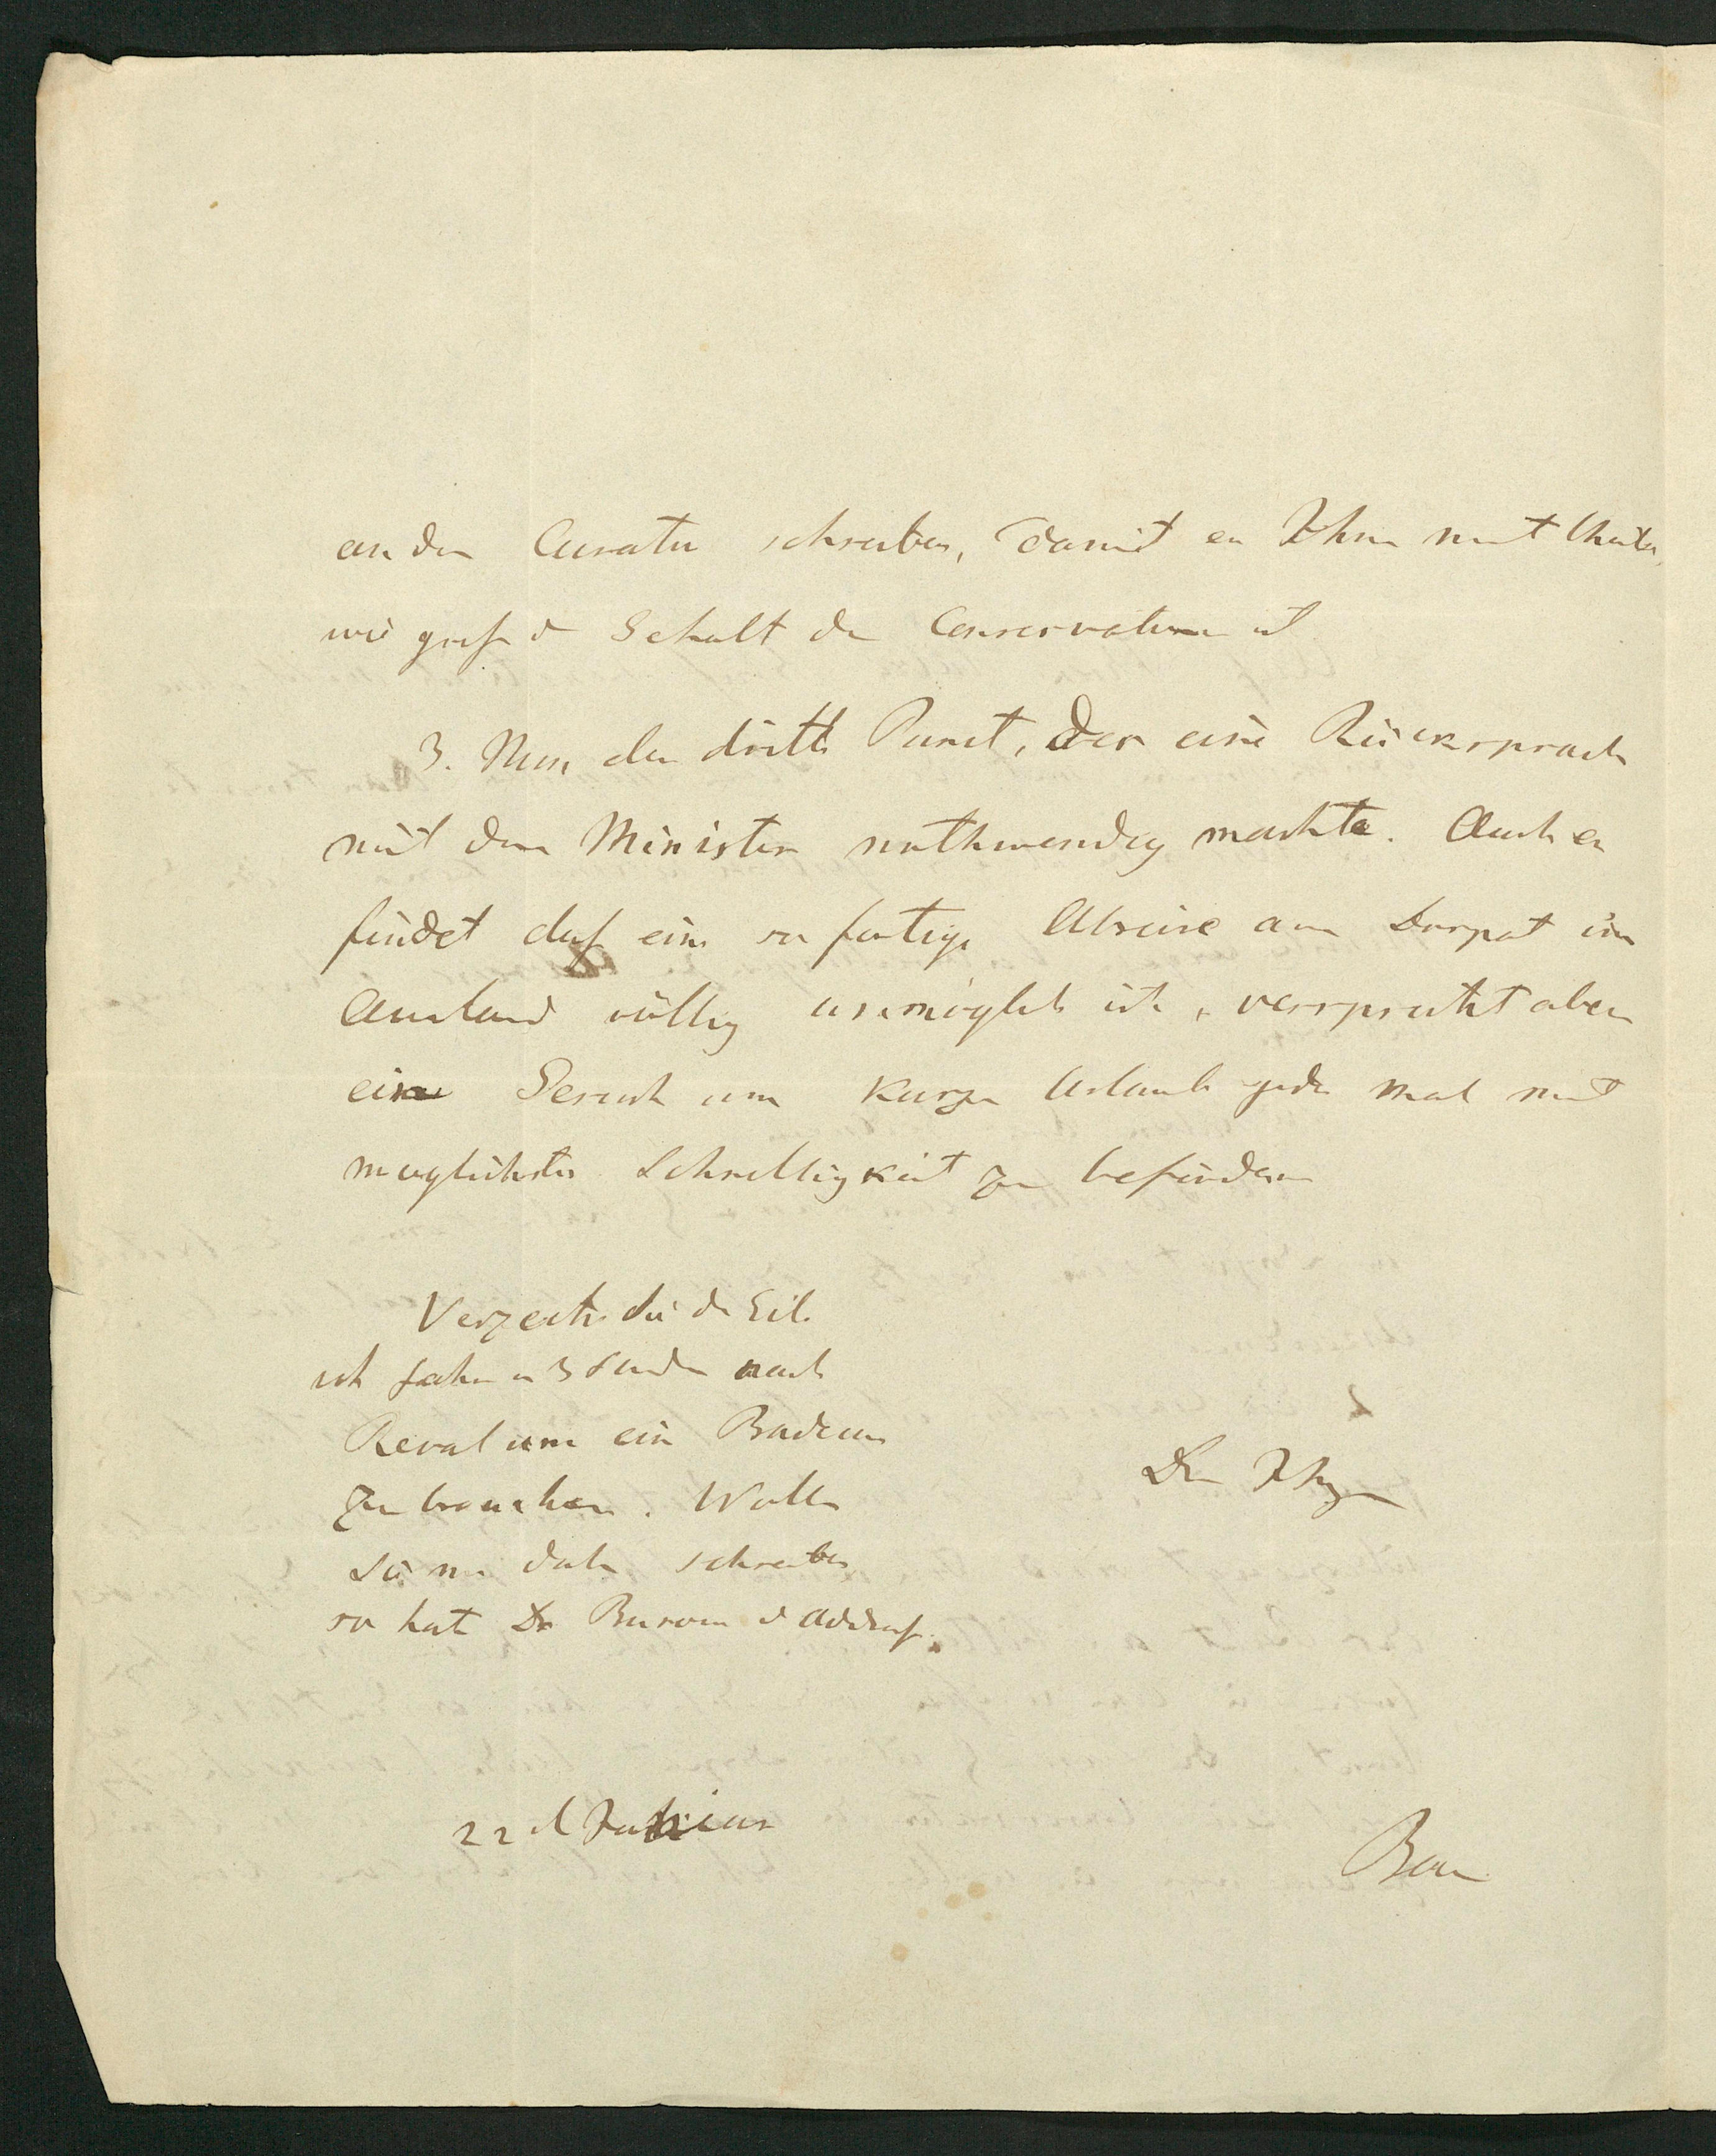 an den Curator schreiben, damit er Ihnen mittheile,
wie groß d Gehalt des Conservators ist
3. Nun der dritte Punct, der eine Rücksprache
mit dem Minister nothwendig machte. Auch er
findet daß eine sofortige Abreise aus Dorpat ins
Ausland völlig unmöglich ist, verspricht aber
ein Gesuch um kurzen Urlaub jedes Mal mit
möglichster Schnelligkeit zu befördern
Verzeihen Sie die Eile
ich fahre in 3 Stunden nach
Reval um eine Badecur
zu brauchen. Wollen
Sie mir dahin schreiben
so hat Dr d Adresse.
Der Ihrige
22 d Junius
Baer